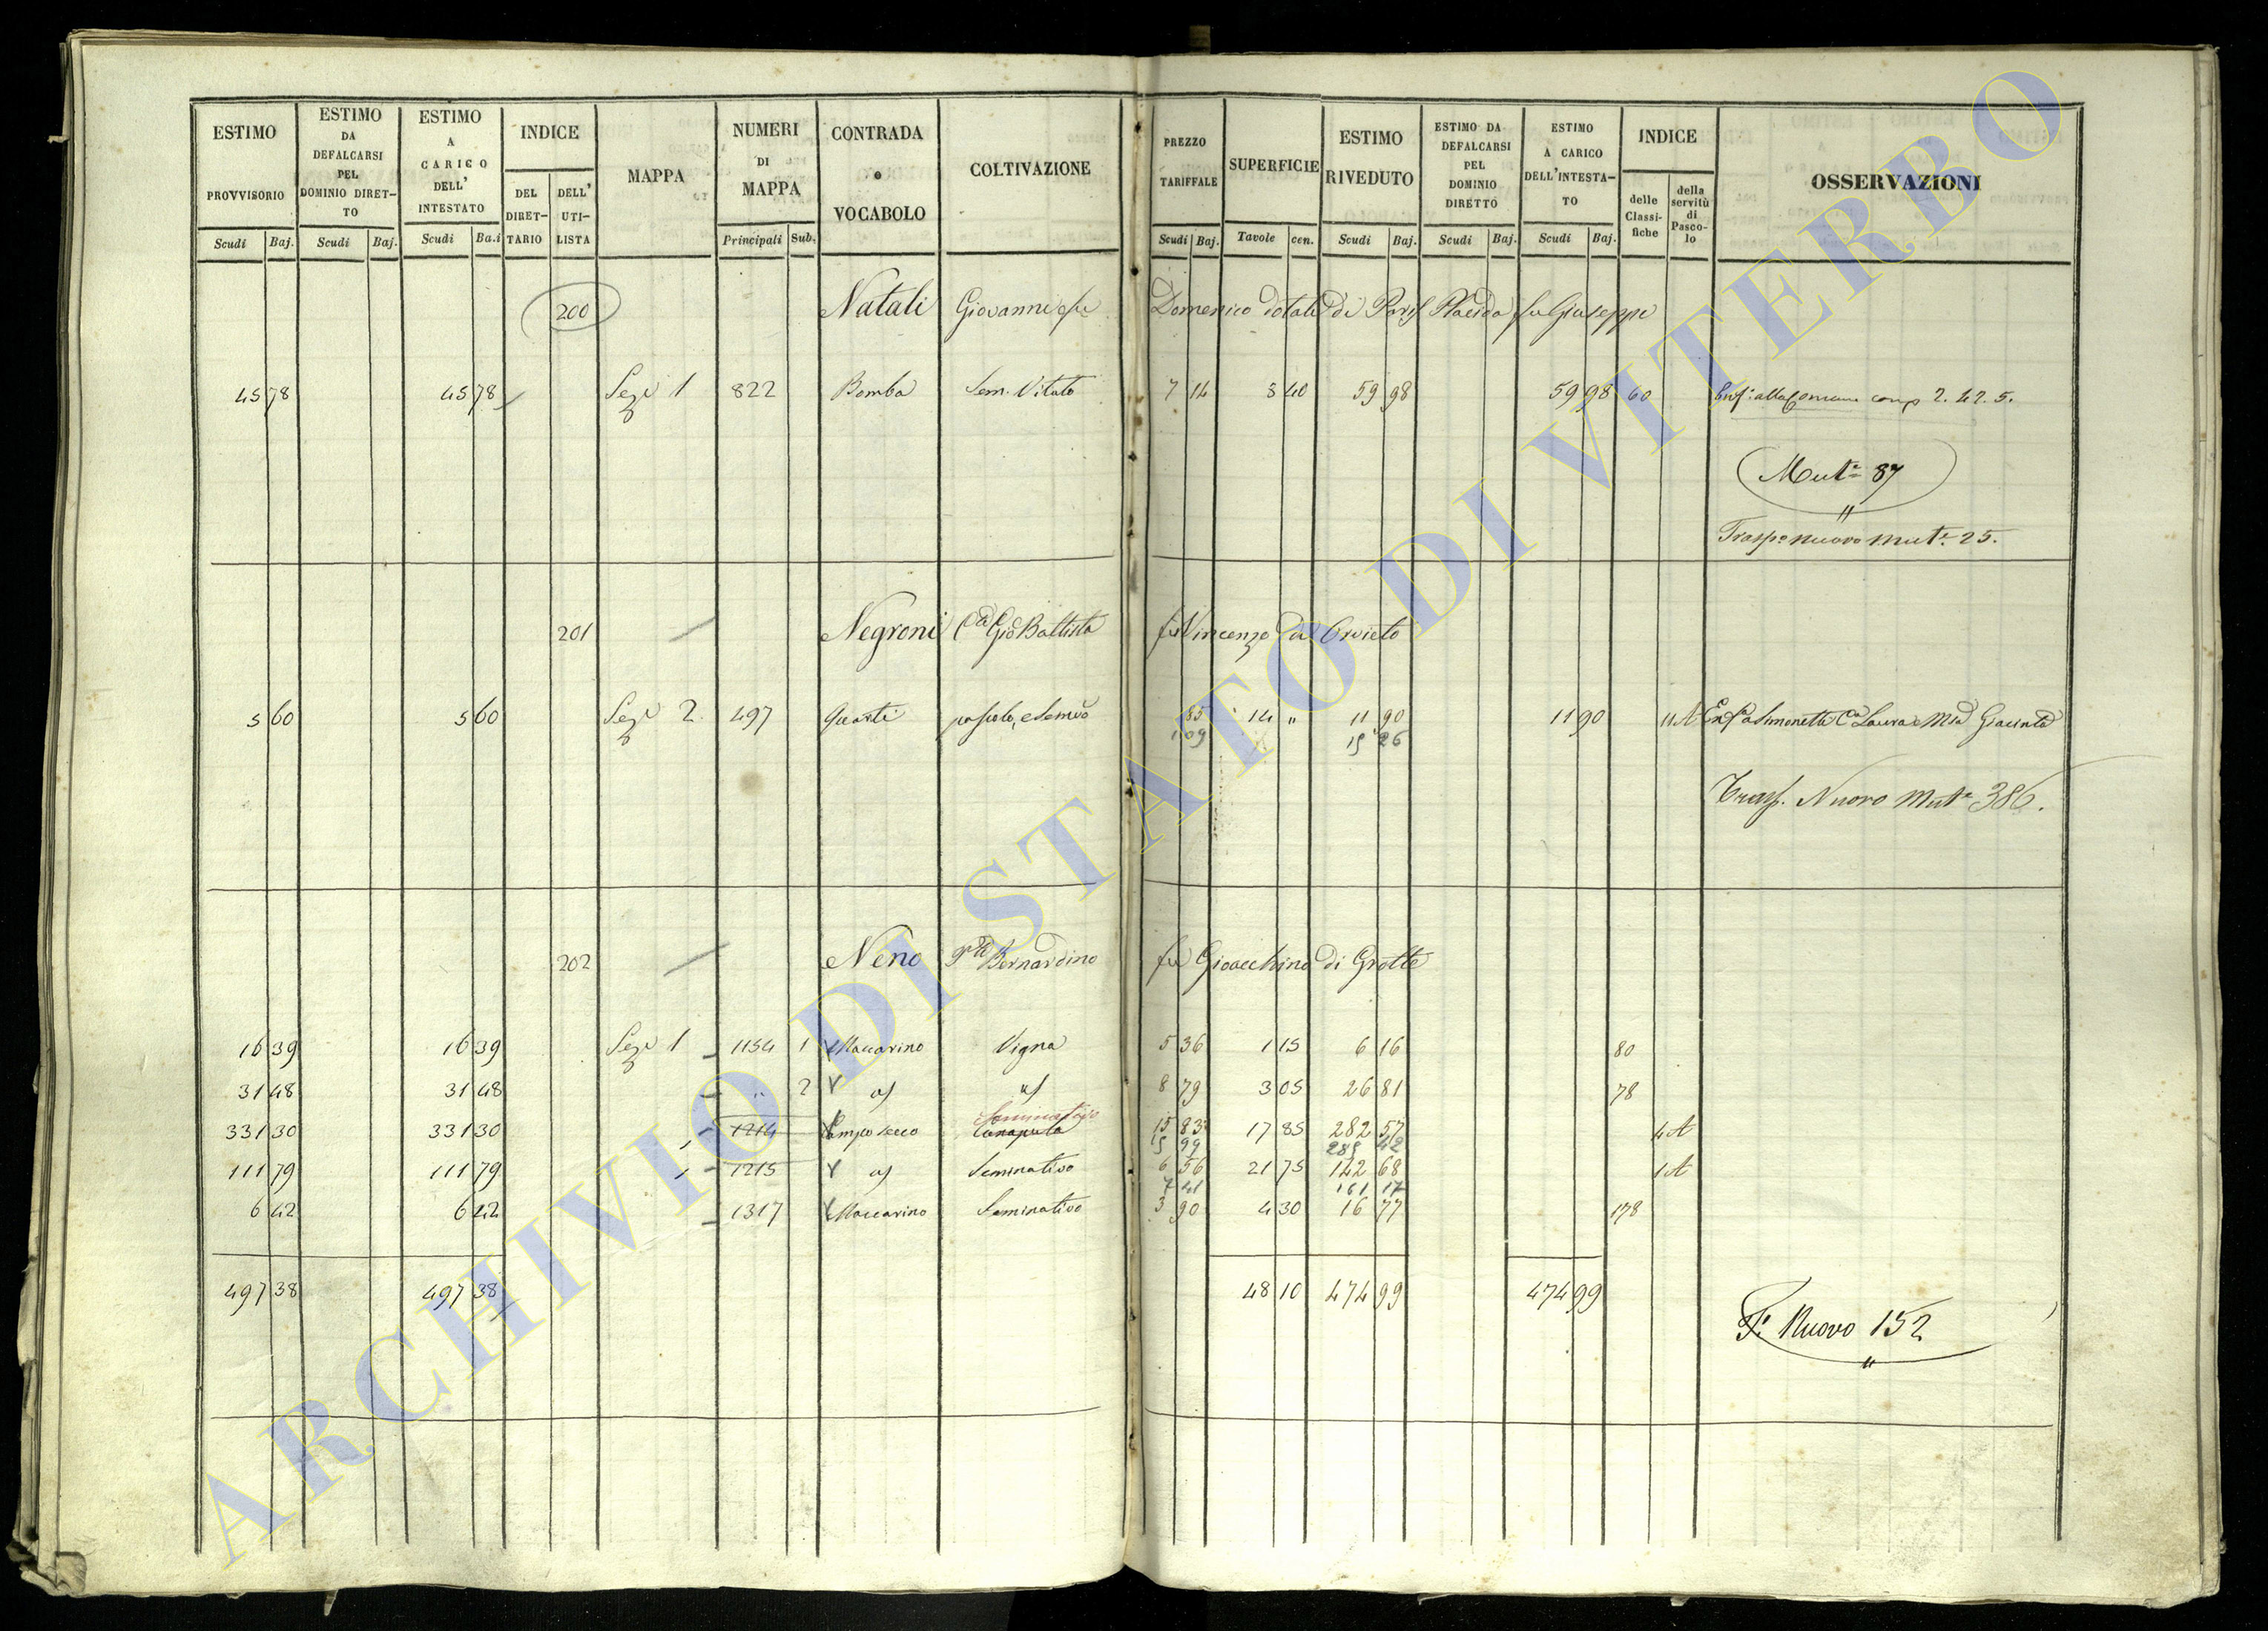 ESTIMO PROVVISORIO Scudi Baj.
ESTIMO DA DEFALCARSI PEL DOMINIO DIRET-TO Scudi Baj.
ESTIMO A CARICO DELL' INTESTATO Scudi Ba.i
INDICE DEL DIRET-TARIO DELL' UTI-LISTA
MAPPA
NUMERI DI MAPPA Principali Sub.
CONTRADA o VOCABOLO
COLTIVAZIONE
PREZZO TARIFFALE Scudi Baj.
SUPERFICIE Tavole cen.
ESTIMO RIVEDUTO Scudi Baj.
ESTIMO DA DEFALCARSI PEL DOMINIO DIRETTO Scudi Baj.
ESTIMO A CARICO DELL'INTESTA-TO Scudi Baj.
INDICE delle Classi-fiche della servitù di Pasco-lo
OSSERVAZIONI
200 Natali Giovanni fu Domenico dotali di Placida fu Giuseppe
45 78 45 78 Sez 1 822 Bomba Sem. Vitato 7 14 8 40 59 98 59 98 60 2. 42. 5.
Mutª 87
"
Traspº nuovo Mutª 25.
201 Negroni Gio Battista fu Vincenzo da Orvieto
5 60 5 60 Sez 2 497 Quarti pascolo, e Semivo 85 14 " 11 90 11 90 11 A Simonetti Laura Giacinta
1 09 15 26
Trasp. Nuovo Mutª 386.
202 Neno Bernardino fu Gioacchino di Grotte
16 39 16 39 Sez 1 1154 1 Maccarino Vigna 5 36 1 15 6 16 80
31 48 31 48 " 2 8 79 3 05 26 81 78
Seminativo
331 30 331 30 1214 Camposecco Canaputa 15 83 17 85 282 57 4 A
15 99 285 42
111 79 111 79 1215 Seminativo 6 56 21 75 142 68 1 A
7 41 161 17
6 42 6 42 1317 Maccarino Seminativo 3 90 4 30 16 77 178
497 38 497 38 48 10 474 99 474 99
T. Nuovo 152
"
ARCHIVIO DI STATO DI VITERBO